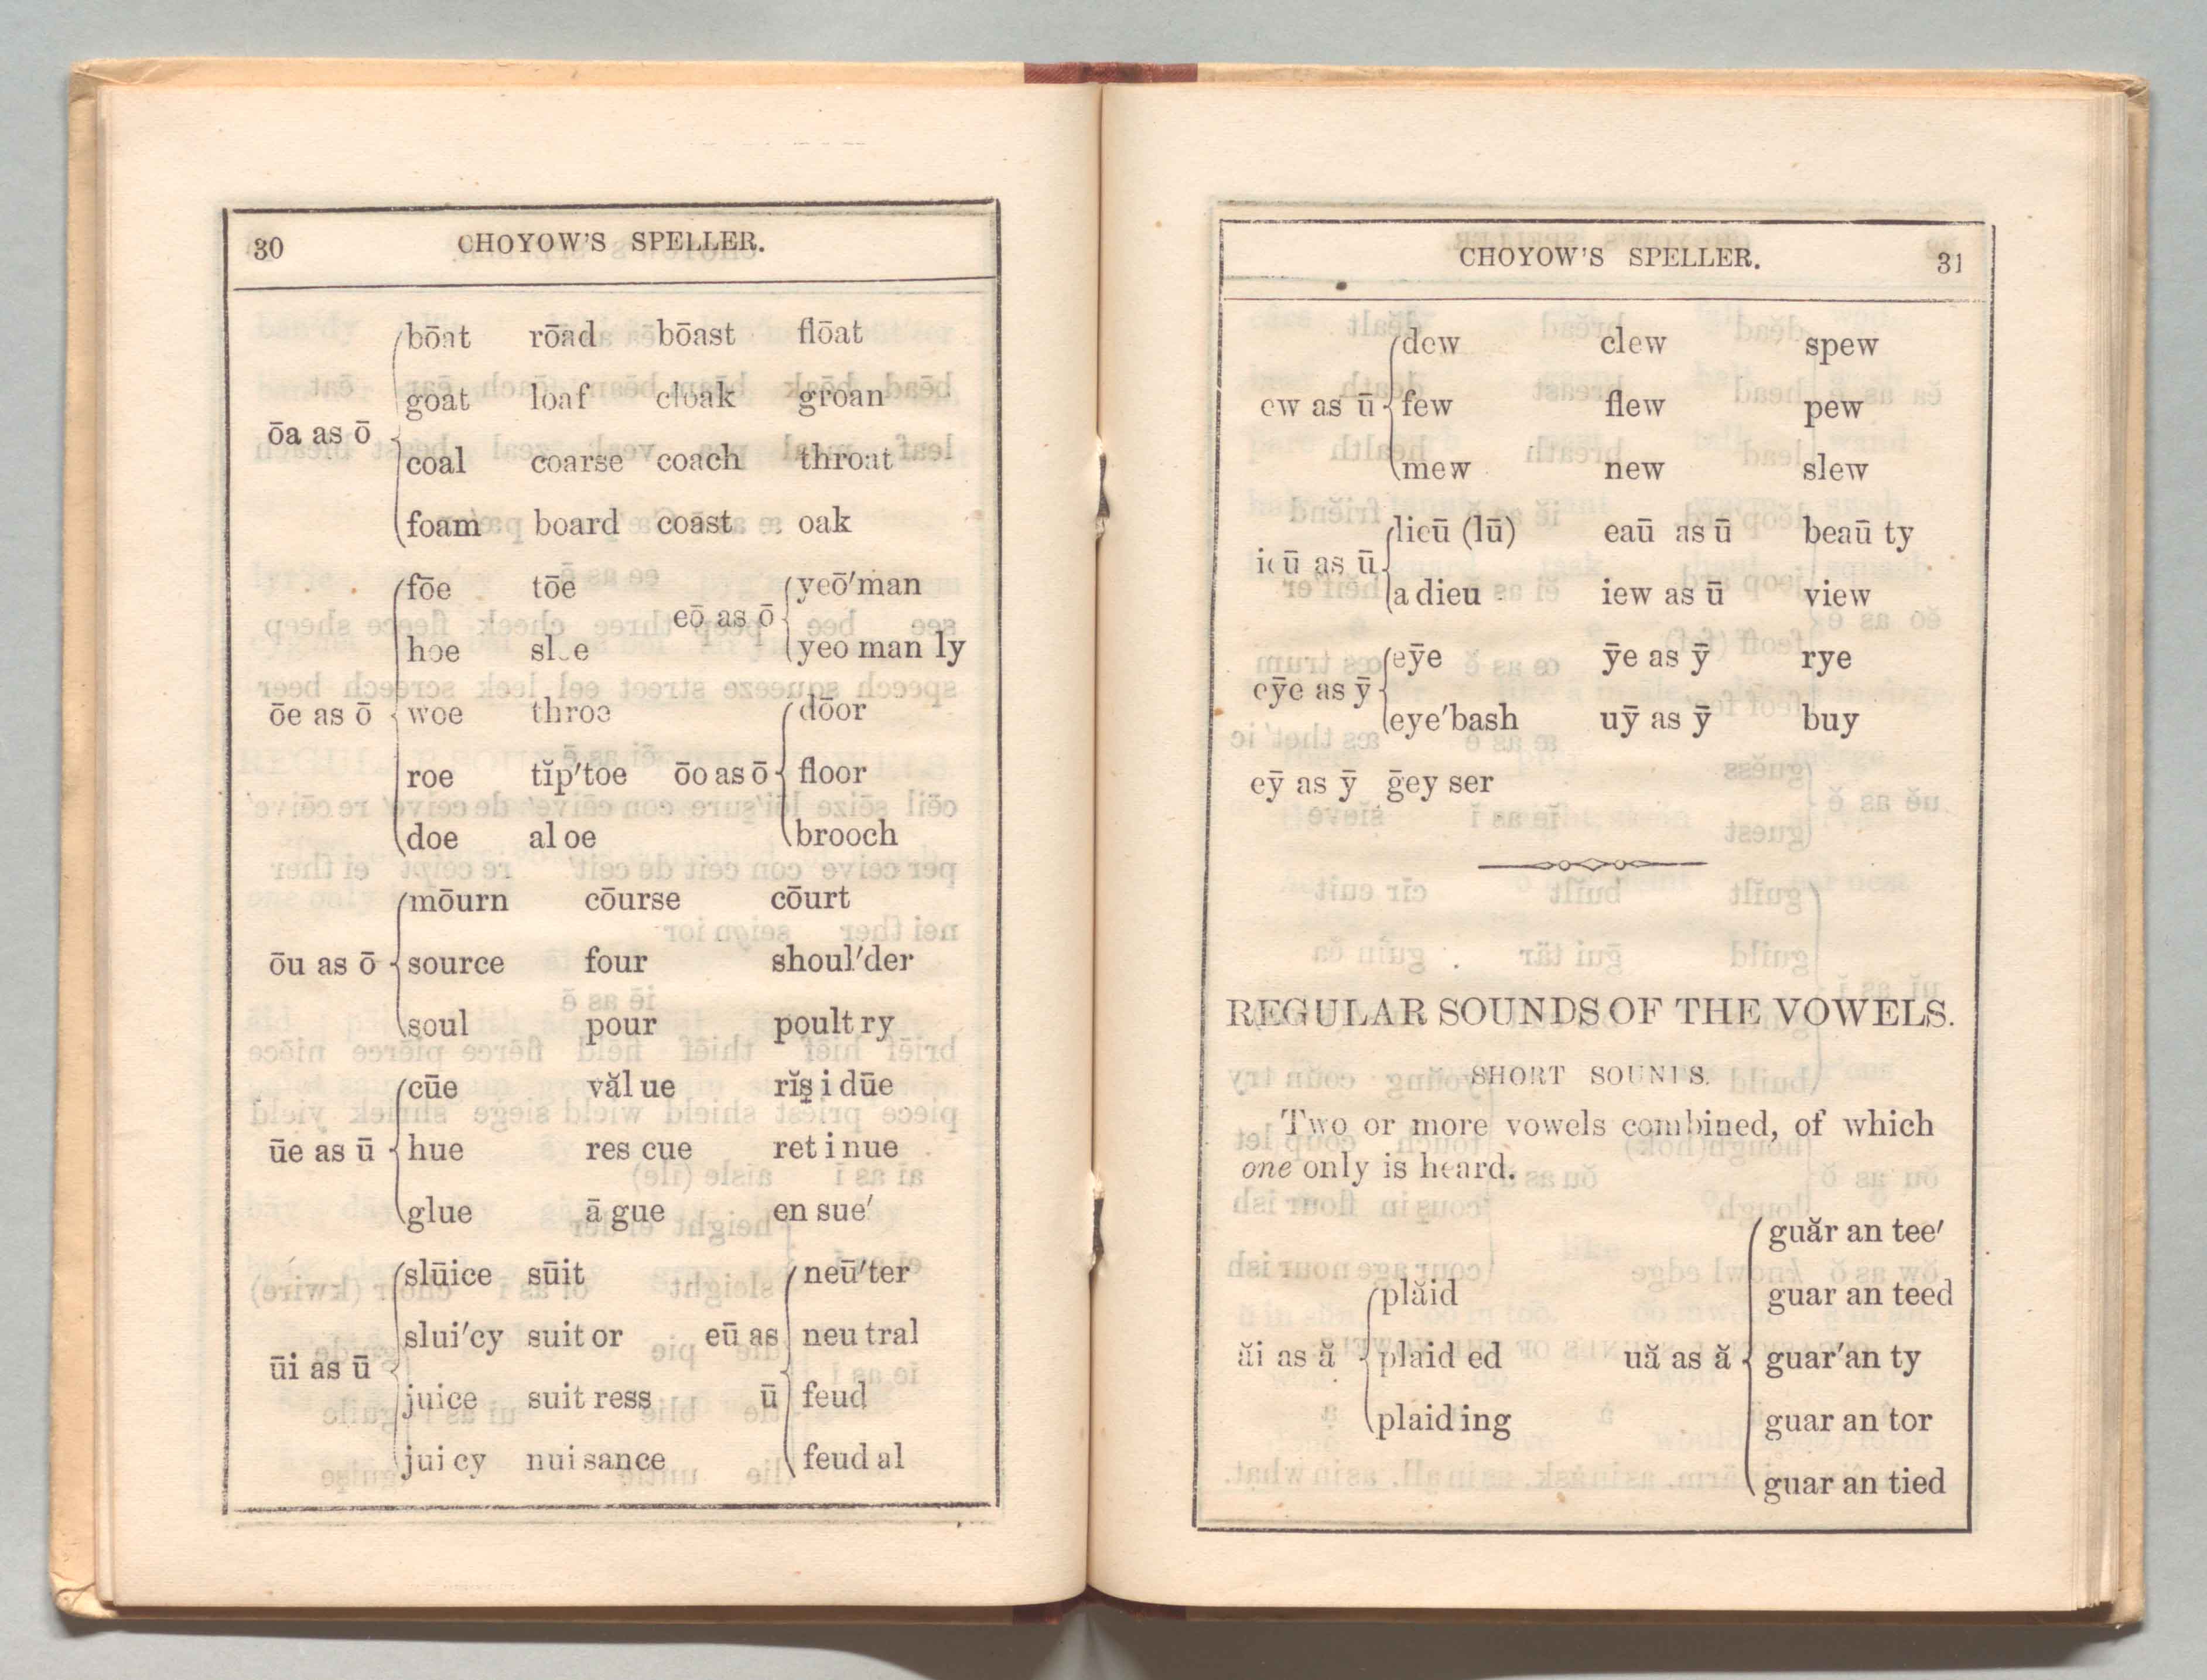 30 CHOYOW'S SPELLER.
bōat rōad bōast flōat
goat loaf cloak groan
ōa as ō
coal coarse coach throat
foam board coast oak
fōe tōe yeō'man
eō as ō
hoe sloe yeo man ly
ōe as ō woe throe dōor
roe tĭp'toe ōo as ō floor
doe al oe brooch
mōurn cōurse cōurt
ōu as ō source four shoul'der
soul pour poult ry
cūe văl ue rĭş i dūe
ūe as ū hue res cue ret i nue
glue ā gue en sue'
slūice sūit neū'ter
slui'cy suit or eū as neu tral
ūi as ū
juice suit ress ū feud
jui cy nui sance feud al
CHOYOW'S SPELLER. 31
dew clew spew
ew as ū few flew pew
mew new slew
lieū (lū) eaū as ū beaū ty
ieū as ū
a dieu iew as ū view
eȳe ȳe as ȳ rye
eȳe as ȳ
eye'bash uȳ as ȳ buy
eȳ as ȳ ḡey ser
REGULAR SOUNDS OF THE VOWELS.
SHORT SOUNDS.
Two or more vowels combined, of which
one only is heard.
guăr an tee'
plăid guar an teed
ăi as ă plaid ed uă as ă guar'an ty
plaid ing guar an tor
guar an tied